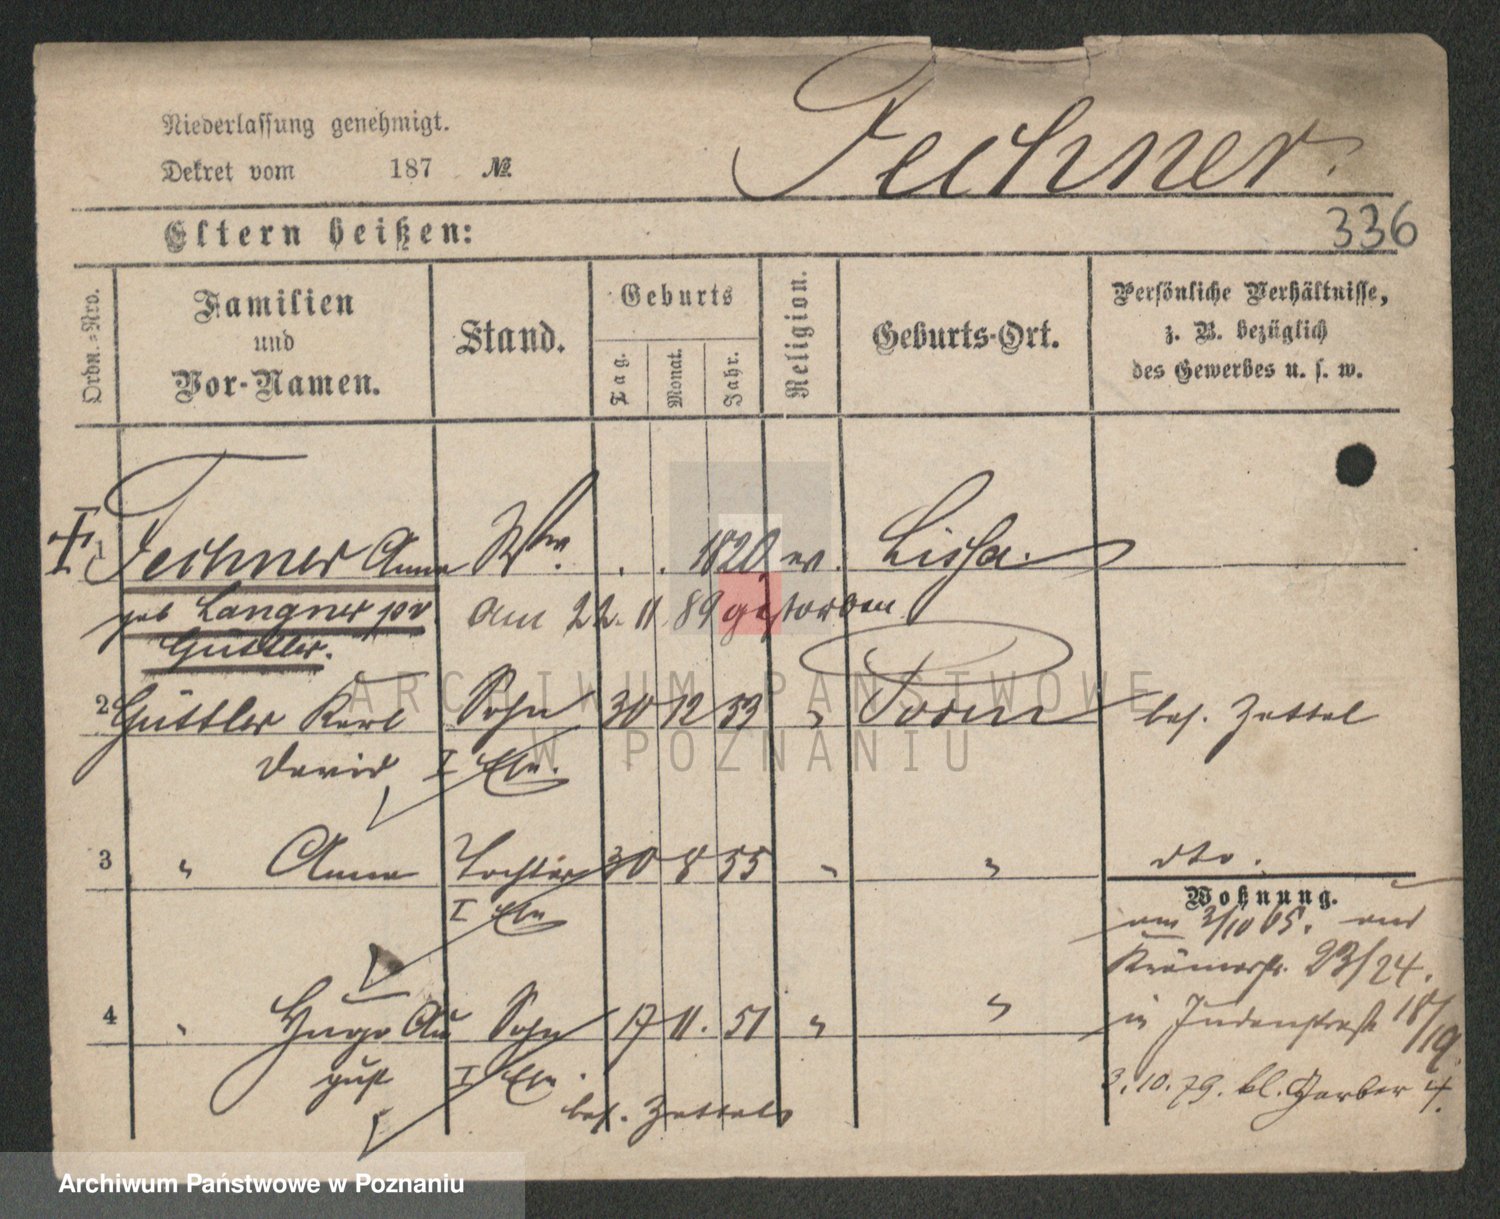 Niederlassung genehmigt.
Dekret vom 187 №
Fechner.
Eltern heißen:
336
Ordn.-Nro.
Familien und Vor-Namen.
Stand.
Geburts
Tag.
Monat.
Jahr.
Religion.
Geburts-Ort.
Persönliche Verhältnisse,
z. B. bezüglich
des Gewerbes u. s. w.
1 Fechner Anna Ww. . . 1820 ev. Lissa.
geb Langner pv. am 22. 11. 89 gestorben
Güttler.
2 Güttler Karl Sohn 30 12 53 " Posen bes. Zettel
David I Ehe.
3 " Anna Tochter 30 8 55 " " dto.
I Ehe
Wohnung.
am 3/10 65. aus
Krämerstr. 23/24.
4 " Hugo Au Sohn 17 11. 51 " "
in Judenstraße 18/19.
gust I Ehe.
3.10.79. kl. Gerber 4.
bes. Zettel
ARCHIWUM PAŃSTWOWE
W POZNANIU
Archiwum Państwowe w Poznaniu